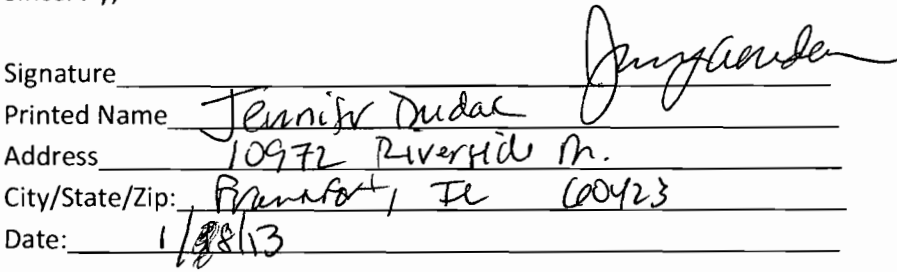 Signature
Printed Name Jennifer Dudac
Address 10972 Riverside Dr.
City/State/Zip: Frankfort, IL 60423
Date: 1/8/13